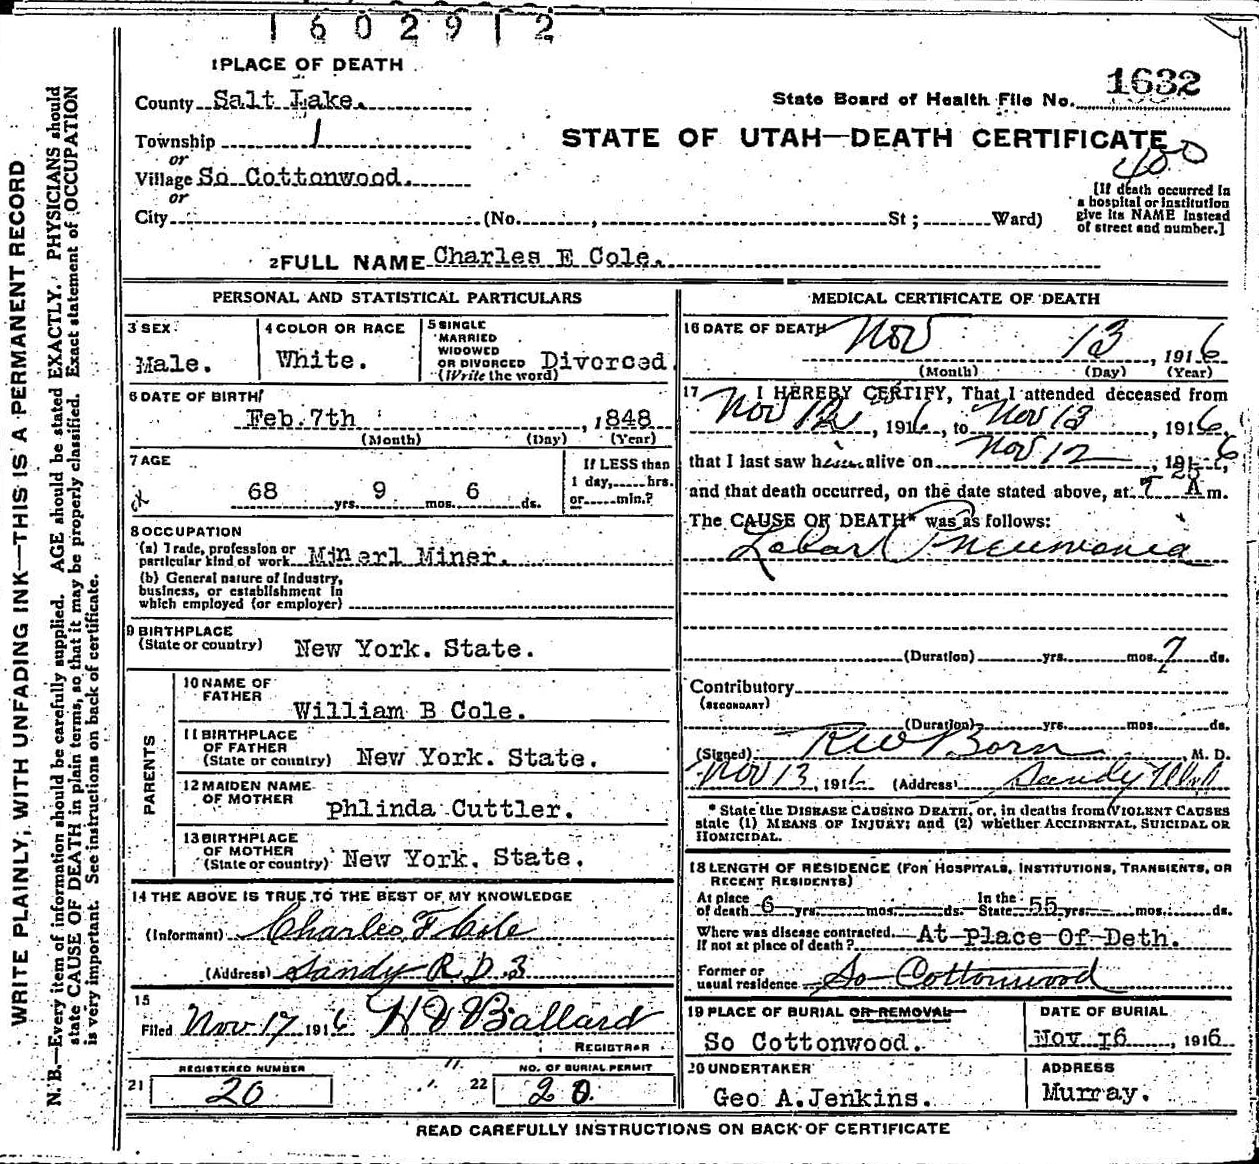 1602912
1 PLACE OF DEATH
County Salt Lake.
State Board of Health File No. 1632
Township 1
or
STATE OF UTAH—DEATH CERTIFICATE
400
Village So Cottonwood.
or
City (No. , St ; Ward)
[If death occurred in
a hospital or institution
give its NAME instead
of street and number.]
2 FULL NAME Charles E Cole.
PERSONAL AND STATISTICAL PARTICULARS
3 SEX
Male.
4 COLOR OR RACE
White.
5 SINGLE
MARRIED
WIDOWED
OR DIVORCED Divorced.
(Write the word)
6 DATE OF BIRTH
Feb. 7th , 1848
(Month) (Day) (Year)
7 AGE
68 yrs. 9 mos. 6 ds.
If LESS than
1 day, hrs.
or min.?
8 OCCUPATION
(a) Trade, profession or
particular kind of work Minerl Miner.
(b) General nature of industry,
business, or establishment in
which employed (or employer)
9 BIRTHPLACE
(State or country) New York. State.
PARENTS
10 NAME OF
FATHER
William B Cole.
11 BIRTHPLACE
OF FATHER
(State or country) New York. State.
12 MAIDEN NAME
OF MOTHER Phlinda Cuttler.
13 BIRTHPLACE
OF MOTHER
(State or country) New York. State.
14 THE ABOVE IS TRUE TO THE BEST OF MY KNOWLEDGE
(Informant) Charles F Cole
(Address) Sandy R. D. 3
15
Filed Nov 17 1916 H V Ballard
REGISTRAR
REGISTERED NUMBER
21 20
NO. OF BURIAL PERMIT
22 20
MEDICAL CERTIFICATE OF DEATH
16 DATE OF DEATH Nov 13 , 1916
(Month) (Day) (Year)
17 I HEREBY CERTIFY, That I attended deceased from
Nov 12 , 1916, to Nov 13 , 1916,
that I last saw him alive on Nov 12 , 1916,
and that death occurred, on the date stated above, at 7 25 A m.
The CAUSE OF DEATH* was as follows:
Lobar Pneumonia
(Duration) yrs. mos. 7 ds.
Contributory
(SECONDARY)
(Duration) yrs. mos. ds.
(Signed) R W Born M. D.
Nov 13, 1916 (Address) Sandy Utah
* State the DISEASE CAUSING DEATH, or, in deaths from VIOLENT CAUSES
state (1) MEANS OF INJURY; and (2) whether ACCIDENTAL, SUICIDAL OR
HOMICIDAL.
18 LENGTH OF RESIDENCE (FOR HOSPITALS, INSTITUTIONS, TRANSIENTS, OR
RECENT RESIDENTS)
At place
of death 6 yrs. mos. ds. In the State 55 yrs. mos. ds.
Where was disease contracted
If not at place of death? At Place Of Deth.
Former or
usual residence So Cottonwood
19 PLACE OF BURIAL OR REMOVAL
So Cottonwood.
DATE OF BURIAL
Nov 16 , 1916
20 UNDERTAKER
Geo A. Jenkins.
ADDRESS
Murray.
READ CAREFULLY INSTRUCTIONS ON BACK OF CERTIFICATE
WRITE PLAINLY, WITH UNFADING INK—THIS IS A PERMANENT RECORD
N. B.—Every item of information should be carefully supplied. AGE should be stated EXACTLY. PHYSICIANS should
state CAUSE OF DEATH in plain terms, so that it may be properly classified. Exact statement of OCCUPATION
is very important. See instructions on back of certificate.